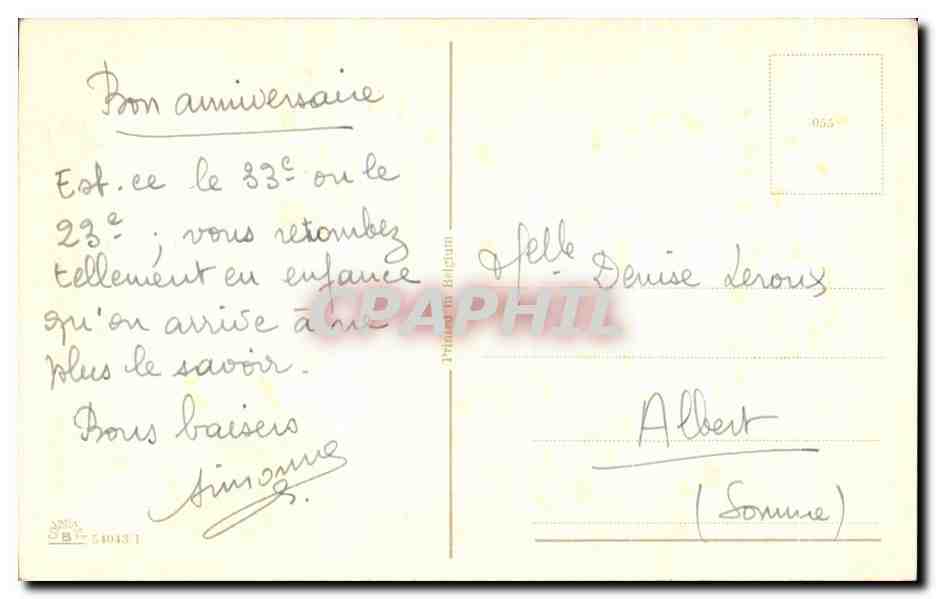 Bon anniversaire
Est-ce le 33e ou le
23e ; vous retombez
tellement en enfance
qu'on arrive à ne
plus le savoir.
Bons baisers
Simonne
B
54043/1
Printed in Belgium
055
Melle Denise Leroux
Albert
(Somme)
CPAPHIL